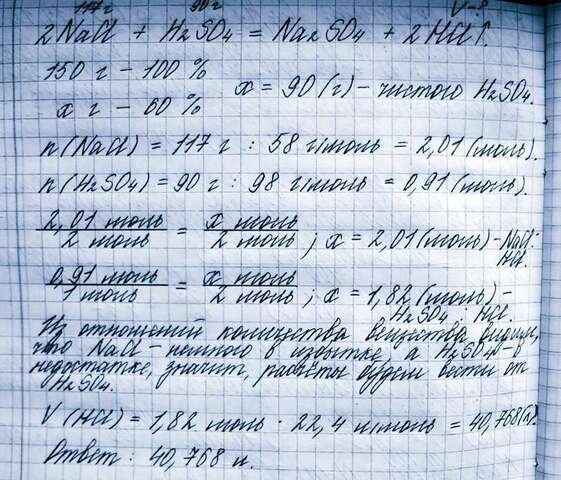 117 г 90 г V-?
2NaCl + H₂SO₄ = Na₂SO₄ + 2HCl↑.
150 г – 100 %
x г – 60 % x = 90 (г) – чистого H₂SO₄.
n(NaCl) = 117 г : 58 г/моль = 2,01 (моль).
n(H₂SO₄) = 90 г : 98 г/моль = 0,91 (моль).
2,01 моль / 2 моль = x моль / 2 моль ; x = 2,01 (моль) – NaCl : HCl.
0,91 моль / 1 моль = x моль / 2 моль ; x = 1,82 (моль) – H₂SO₄ : HCl.
Из отношений количества вещества видим,
что NaCl – немного в избытке, а H₂SO₄ – в
недостатке, значит, расчёты будем вести от
H₂SO₄.
V(HCl) = 1,82 моль · 22,4 л/моль = 40,768 (л).
Ответ : 40,768 л.